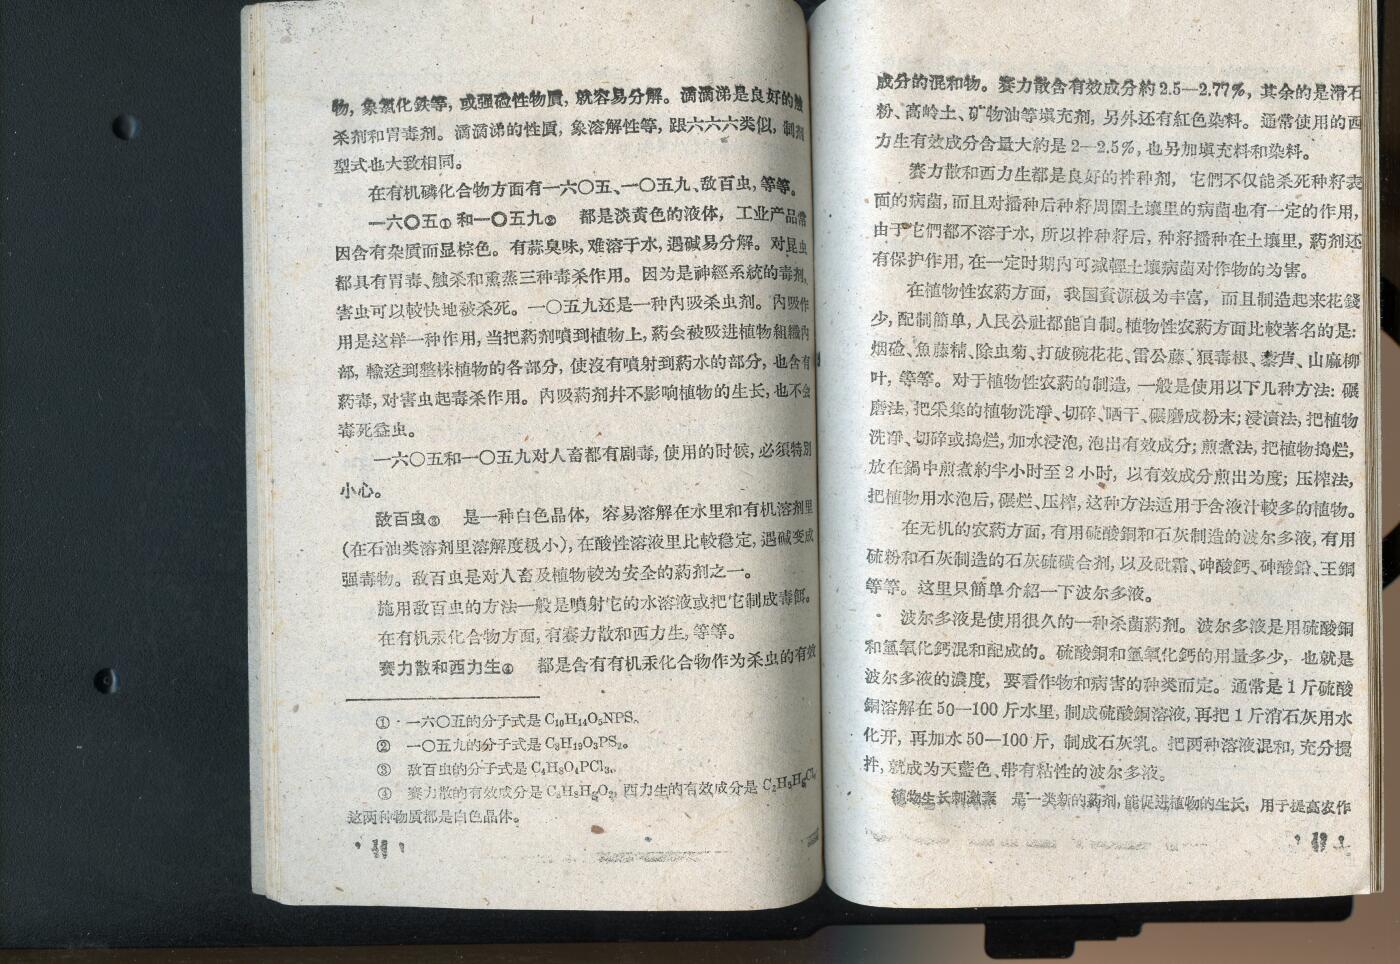 物, 象氯化鉄等, 或强硷性物質, 就容易分解。滴滴涕是良好的触
杀剂和胃毒剂。滴滴涕的性質, 象溶解性等, 跟六六六类似, 制剂
型式也大致相同。
在有机磷化合物方面有一六〇五、一〇五九、敌百虫, 等等。
一六〇五① 和一〇五九② 都是淡黄色的液体, 工业产品常
因含有杂質而显棕色。有蒜臭味, 难溶于水, 遇碱易分解。对昆虫
都具有胃毒、触杀和熏蒸三种毒杀作用。因为是神經系統的毒剂,
害虫可以較快地被杀死。一〇五九还是一种內吸杀虫剂。內吸作
用是这样一种作用, 当把葯剂噴到植物上, 葯会被吸进植物組織內
部, 輸送到整株植物的各部分, 使沒有噴射到葯水的部分, 也含有
葯毒, 对害虫起毒杀作用。內吸葯剂幷不影响植物的生长, 也不会
毒死益虫。
一六〇五和一〇五九对人畜都有剧毒, 使用的时候, 必須特別
小心。
敌百虫③ 是一种白色晶体, 容易溶解在水里和有机溶剂里
(在石油类溶剂里溶解度极小), 在酸性溶液里比較稳定, 遇碱变成
强毒物。敌百虫是对人畜及植物較为安全的葯剂之一。
施用敌百虫的方法一般是噴射它的水溶液或把它制成毒餌。
在有机汞化合物方面, 有賽力散和西力生, 等等。
賽力散和西力生④ 都是含有有机汞化合物作为杀虫的有效
① 一六〇五的分子式是 C₁₀H₁₄O₅NPS。
② 一〇五九的分子式是 C₈H₁₉O₃PS₂。
③ 敌百虫的分子式是 C₄H₈O₄PCl₃。
④ 賽力散的有效成分是 西力生的有效成分是
这两种物质都是白色晶体。
成分的混和物。賽力散含有效成分約 2.5—2.77%, 其余的是滑石
粉、高岭土、矿物油等填充剂, 另外还有紅色染料。通常使用的西
力生有效成分含量大約是 2—2.5%, 也另加填充料和染料。
賽力散和西力生都是良好的拌种剂, 它們不仅能杀死种籽表
面的病菌, 而且对播种后种籽周圍土壤里的病菌也有一定的作用,
由于它們都不溶于水, 所以拌种籽后, 种籽播种在土壤里, 葯剂还
有保护作用, 在一定时期內可減輕土壤病菌对作物的为害。
在植物性农葯方面, 我国資源极为丰富, 而且制造起来花錢
少, 配制簡单, 人民公社都能自制。植物性农葯方面比較著名的是:
烟硷、魚藤精、除虫菊、打破碗花花、雷公藤、狼毒根、藜芦、山麻柳
叶, 等等。对于植物性农葯的制造, 一般是使用以下几种方法: 碾
磨法, 把采集的植物洗凈、切碎、晒干、碾磨成粉末; 浸漬法, 把植物
洗凈、切碎或搗烂, 加水浸泡, 泡出有效成分; 煎煮法, 把植物搗烂,
放在鍋中煎煮約半小时至 2 小时, 以有效成分煎出为度; 压榨法,
把植物用水泡后, 碾烂、压榨, 这种方法适用于含液汁較多的植物。
在无机的农葯方面, 有用硫酸銅和石灰制造的波尔多液, 有用
硫粉和石灰制造的石灰硫磺合剂, 以及砒霜、砷酸鈣、砷酸鉛、王銅
等等。这里只簡单介紹一下波尔多液。
波尔多液是使用很久的一种杀菌葯剂。波尔多液是用硫酸銅
和氫氧化鈣混和配成的。硫酸銅和氫氧化鈣的用量多少, 也就是
波尔多液的濃度, 要看作物和病害的种类而定。通常是 1 斤硫酸
銅溶解在 50—100 斤水里, 制成硫酸銅溶液, 再把 1 斤消石灰用水
化开, 再加水 50—100 斤, 制成石灰乳。把两种溶液混和, 充分攪
拌, 就成为天藍色、带有粘性的波尔多液。
植物生长刺激素 是一类新的葯剂, 能促进植物的生长, 用于提高农作